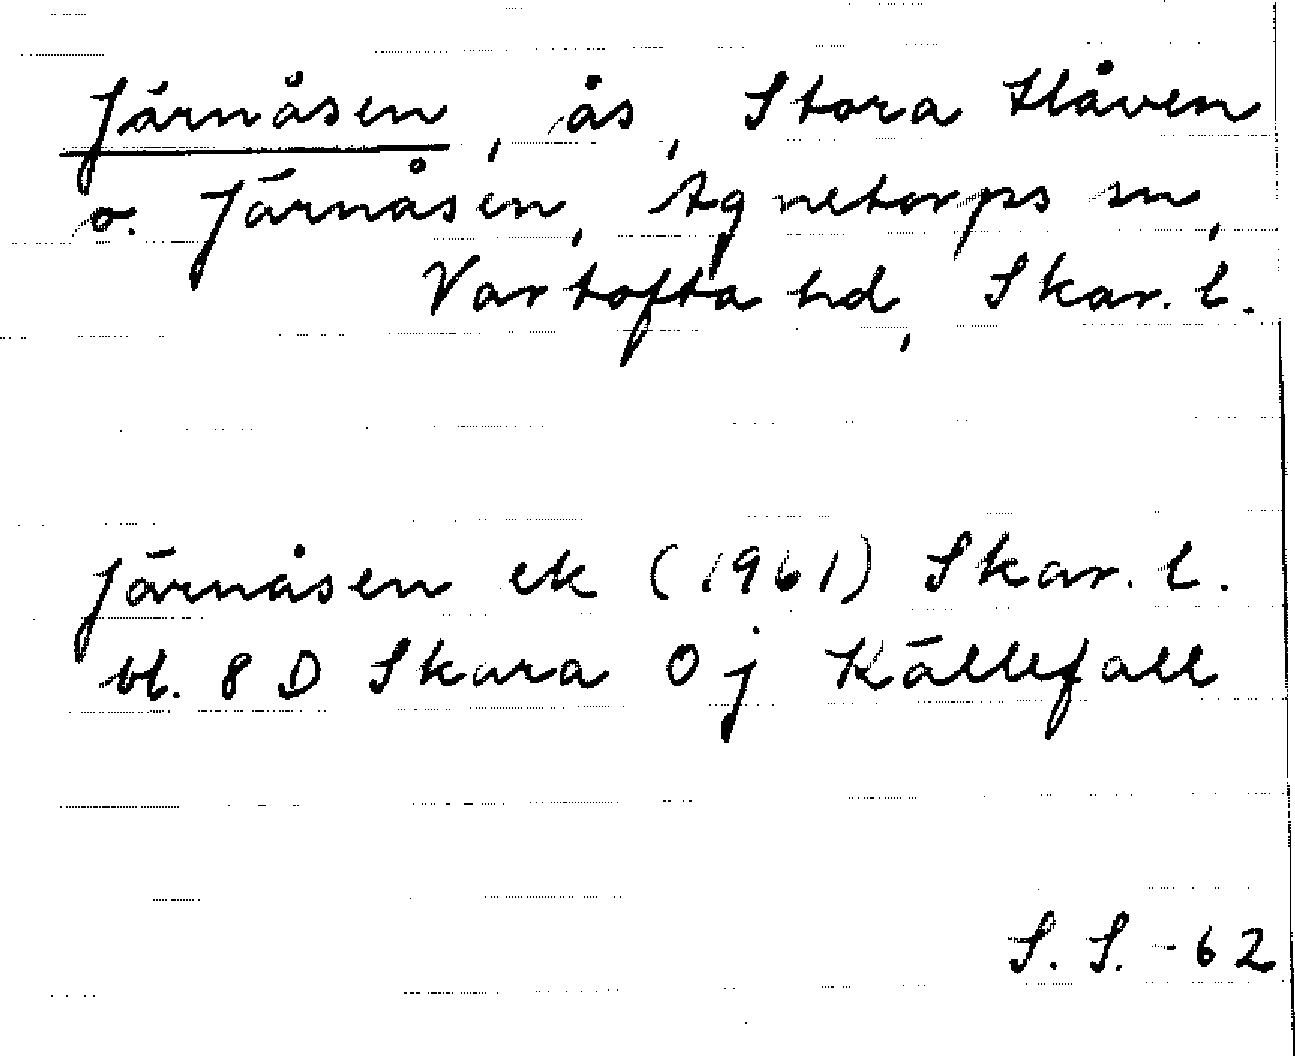 Järnåsen, ås, Stora Håven
o. Järnåsen, Agnetorps sn,
Vartofta hd, Skar. l.
Järnåsen ek (1961) Skar. l.
bl. 8 D Skara 0 j Källefall
S. S. -62